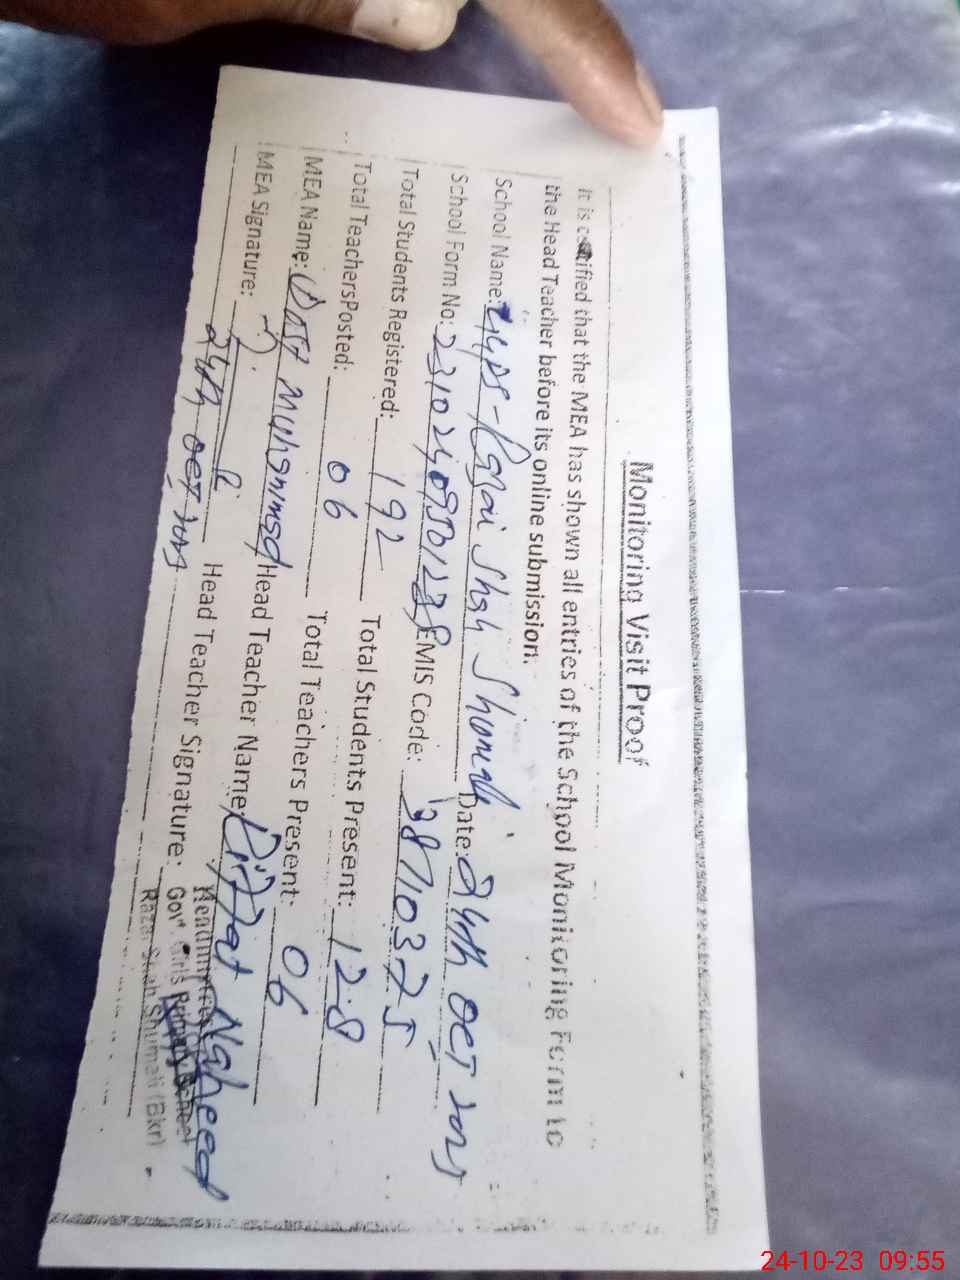 Monitoring Visit Proof
It is certified that the MEA has shown all entries of the School Monitoring Form to
the Head Teacher before its online submission.
School Name: GGPS - Razai Shah Shomali Date: 24th OCT 2023
School Form No: EMIS Code: 38710375
Total Students Registered: 192 Total Students Present: 128
Total Teachers Posted: 06 Total Teachers Present: 06
MEA Name: Dost Muhammad Head Teacher Name: Riffat Naheed
MEA Signature: Head Teacher Signature:
24th OCT 2023
Headmistress
Govt Girls Primary School
Raza Shah Shumali (Bkr)
24-10-23 09:55